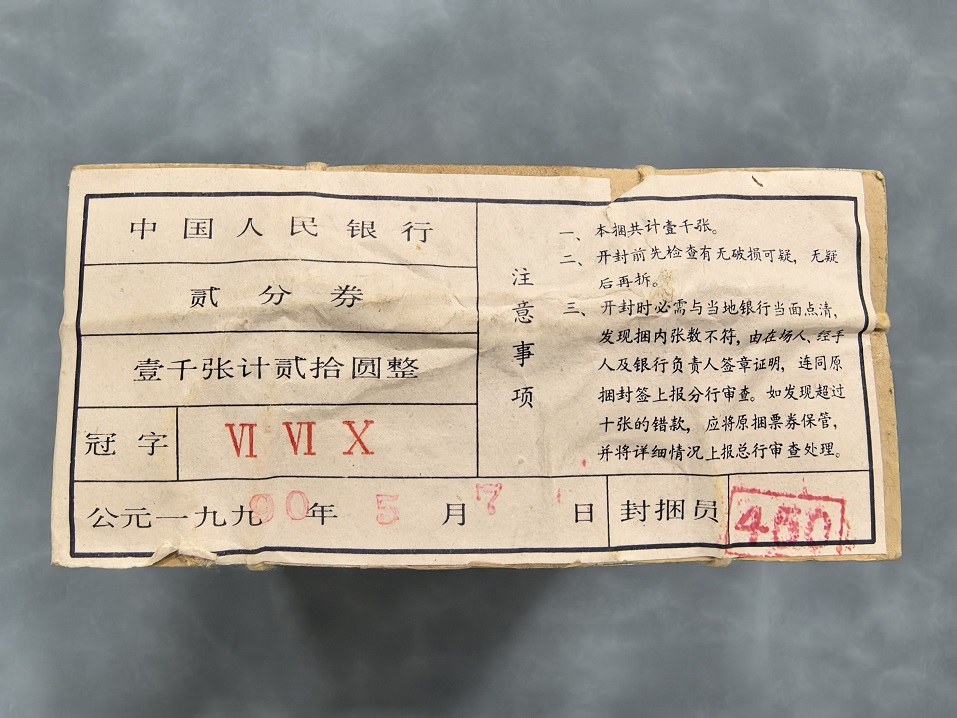 中国人民银行
贰分券
壹千张计贰拾圆整
冠字 VI VI X
公元一九九90年5月7日
封捆员 480
注意事项
一、本捆共计壹千张。
二、开封前先检查有无破损可疑，无疑
后再拆。
三、开封时必需与当地银行当面点清，
发现捆内张数不符，由在场人、经手
人及银行负责人签章证明，连同原
捆封签上报分行审查。如发现超过
十张的错款，应将原捆票券保管，
并将详细情况上报总行审查处理。